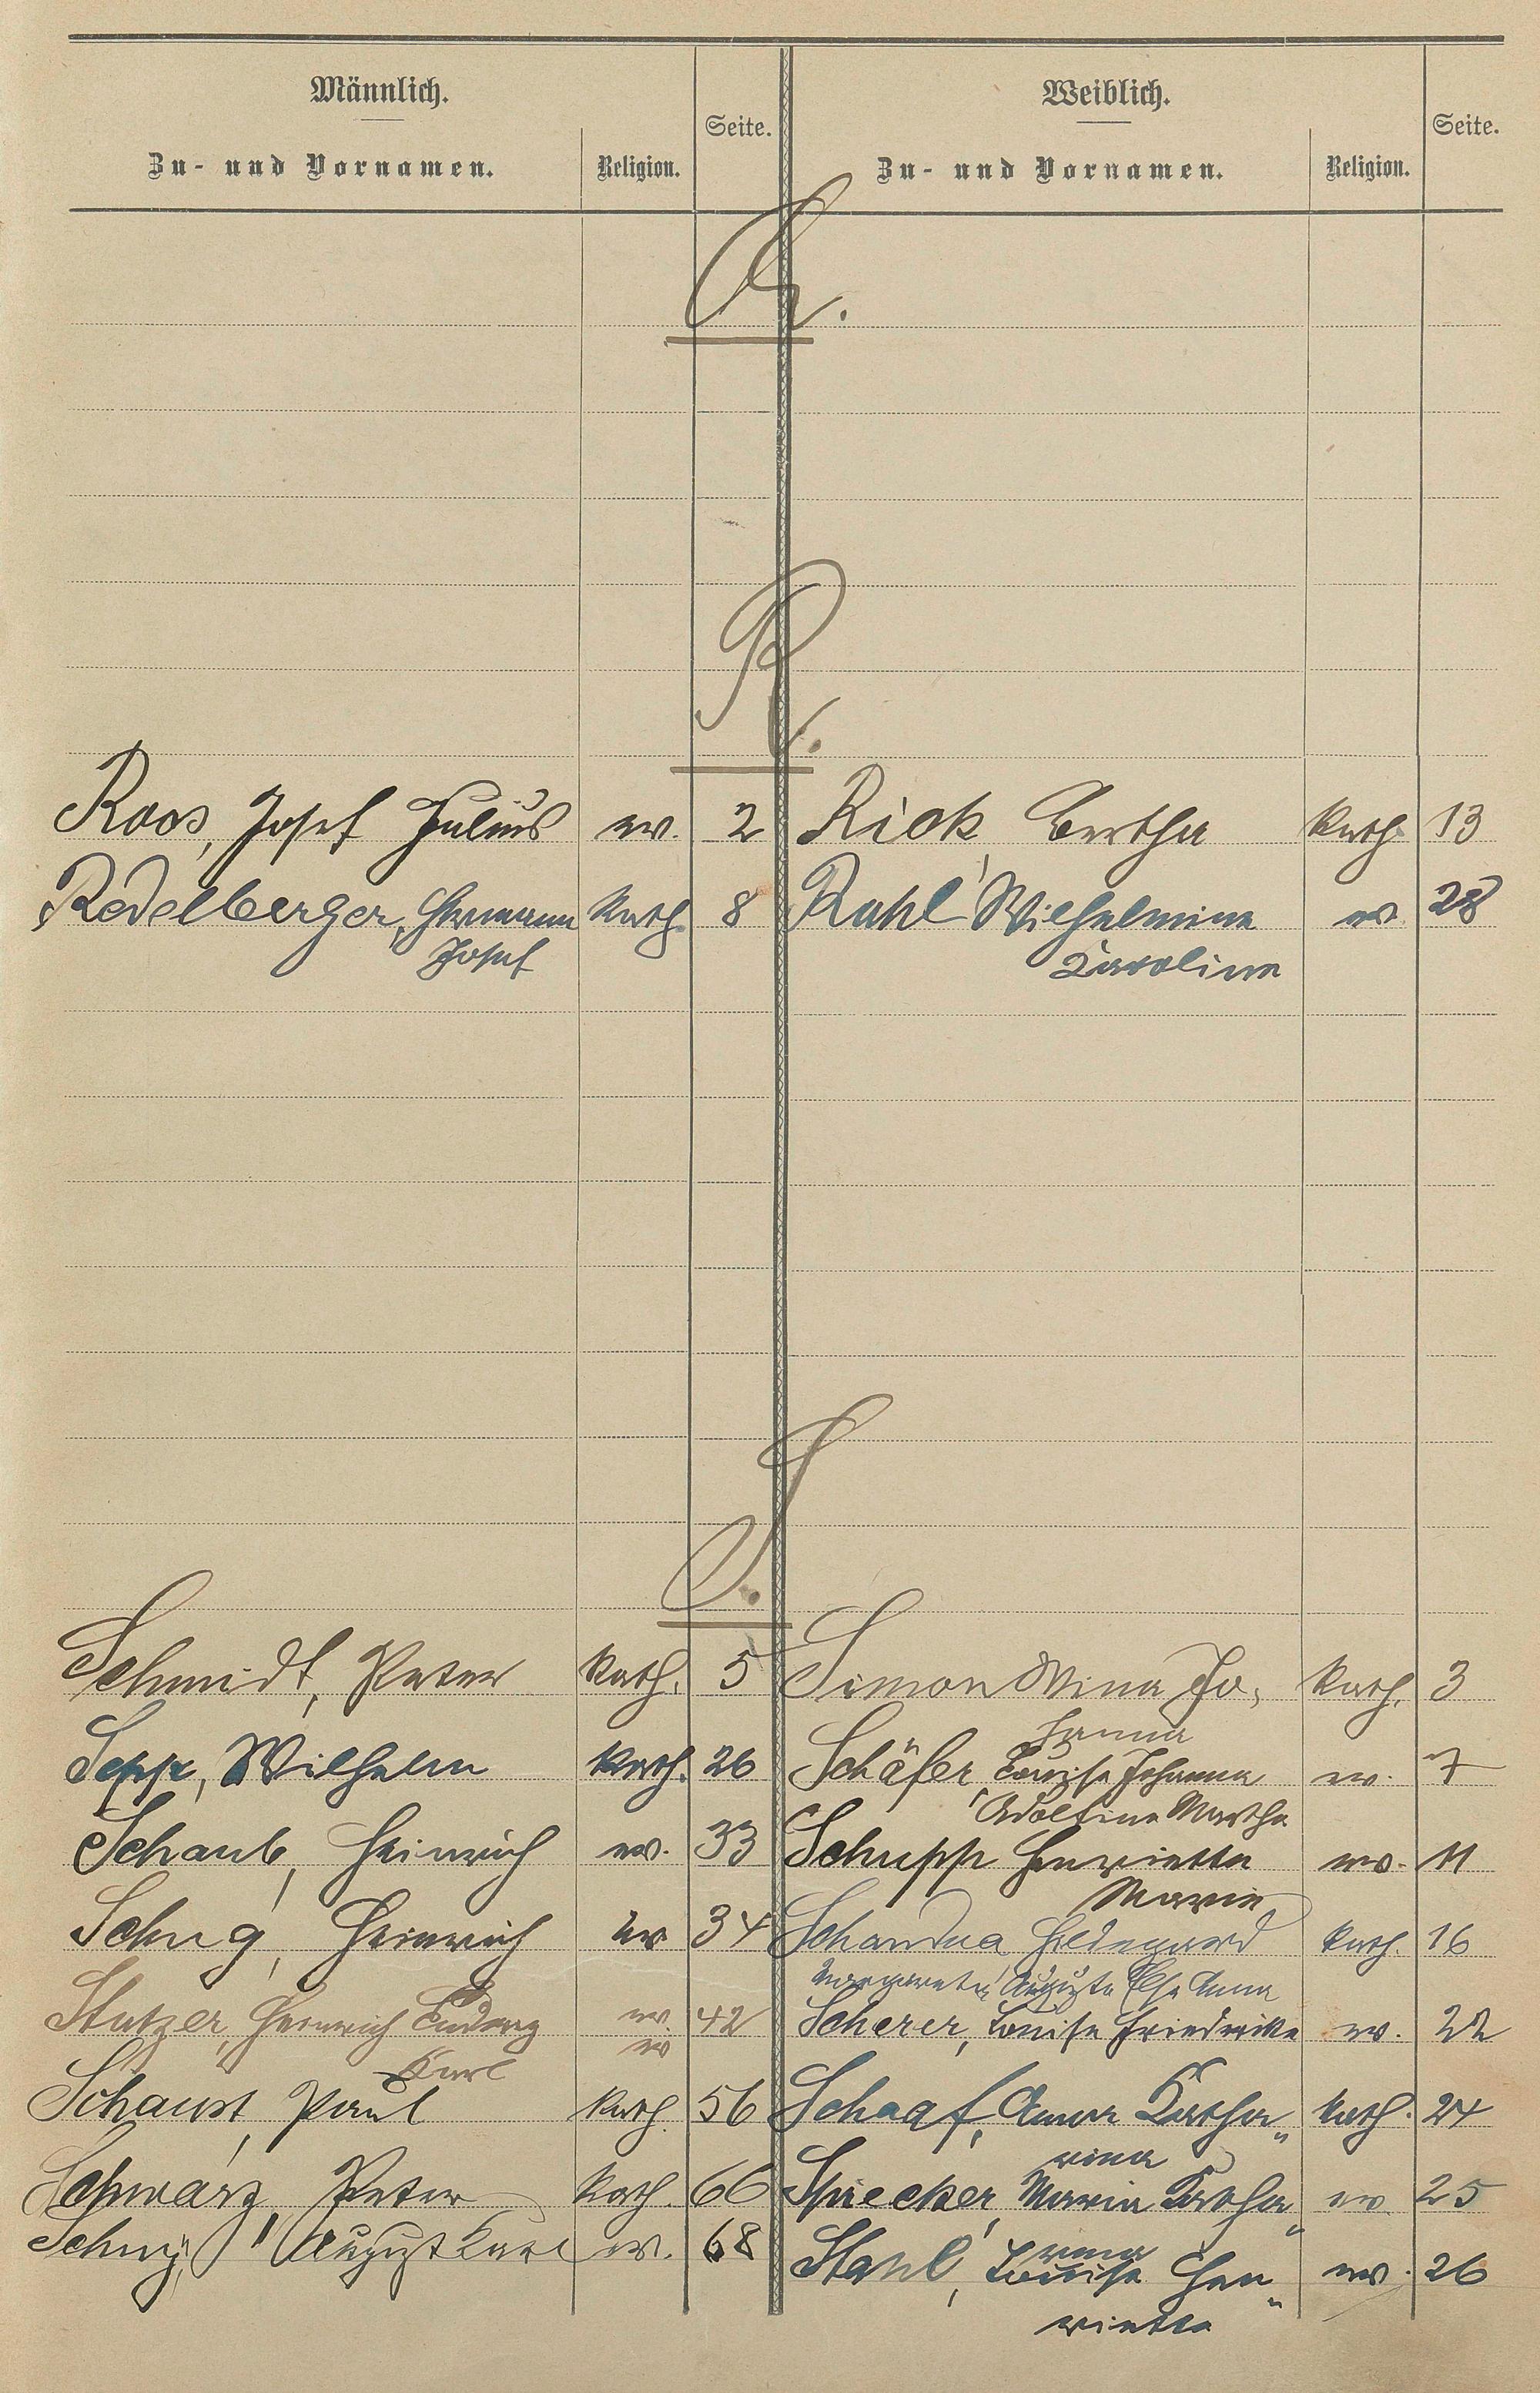 Männlich.
Zu- und Vornamen.
Religion.
Seite.
Weiblich.
Zu- und Vornamen.
Religion.
Seite.
Q.
R.
Roos, Josef Julius ev. 2 Rick, Bertha kath. 13
Redelberger, Hermann kath. 8 Rahl, Wilhelmine ev. 28
Josef Karoline
S.
Schmidt, Peter kath. 5 Simon Mina Jo-kath. 3
hanna
Sepp, Wilhelm kath. 26 Schäfer, Louise Johanna ev. 7
Adolfine Martha
Schaub, Heinrich ev. 33 Schupp Henriette ev. 11
Marie
Schug, Heinrich ev 34 Schandua, Hildegard kath. 16
Margarete Auguste Else Anna
Stutzer, Heinrich Ludwig ev. 42 Scherer, Louise Friedrike ev. 22
Karl ev
Schaust, Paul kath. 56 Schaaf, Anna Katha„ kath. 24
rina
Schwarz, Peter kath. 66 Spriecker, Maria Katha„ ev. 25
rina
Schug, August Karl ev. 68 Stahl, Louise Hen„ ev. 26
riette